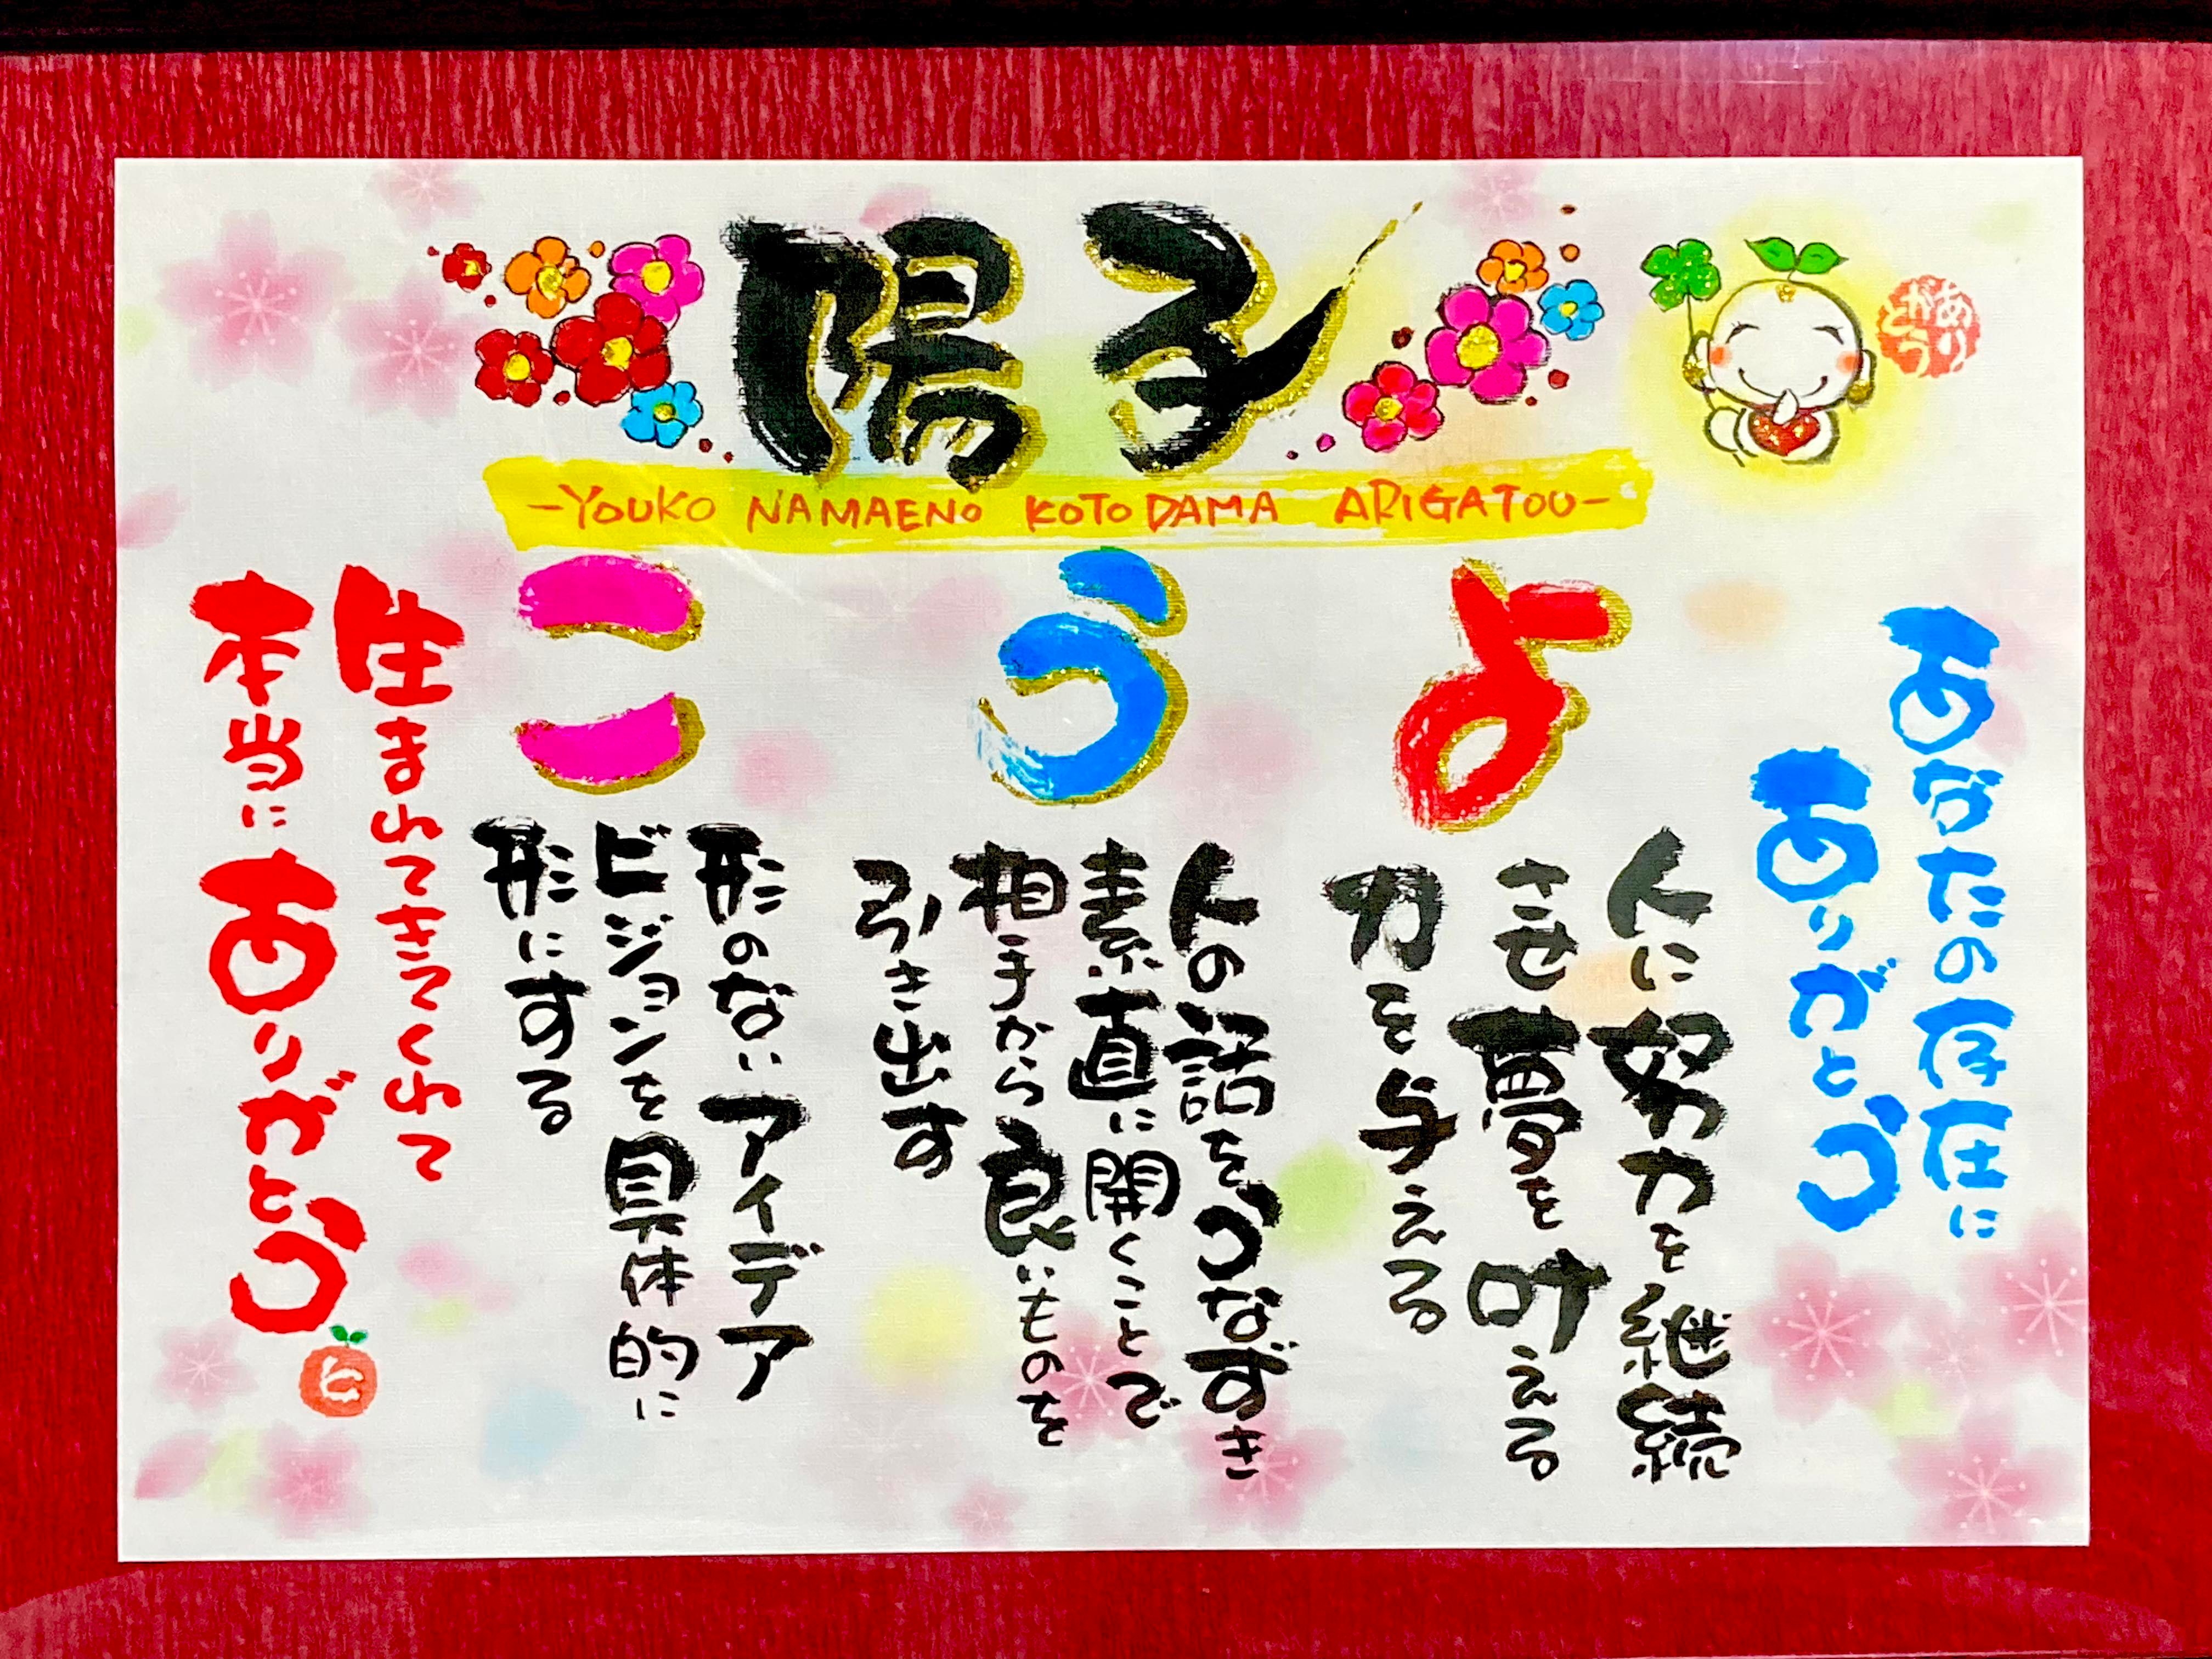 陽子
-YOUKO NAMAENO KOTODAMA ARIGATOU-
ありがとう
あなたの存在に
ありがとう
よ
人に努力を継続
させ夢を叶える
力を与える
う
人の話をうなずき
素直に開くことで
相手から良いものを
引き出す
こ
形のないアイデア
ビジョンを具体的に
形にする
生まれてきてくれて
本当にありがとう
と